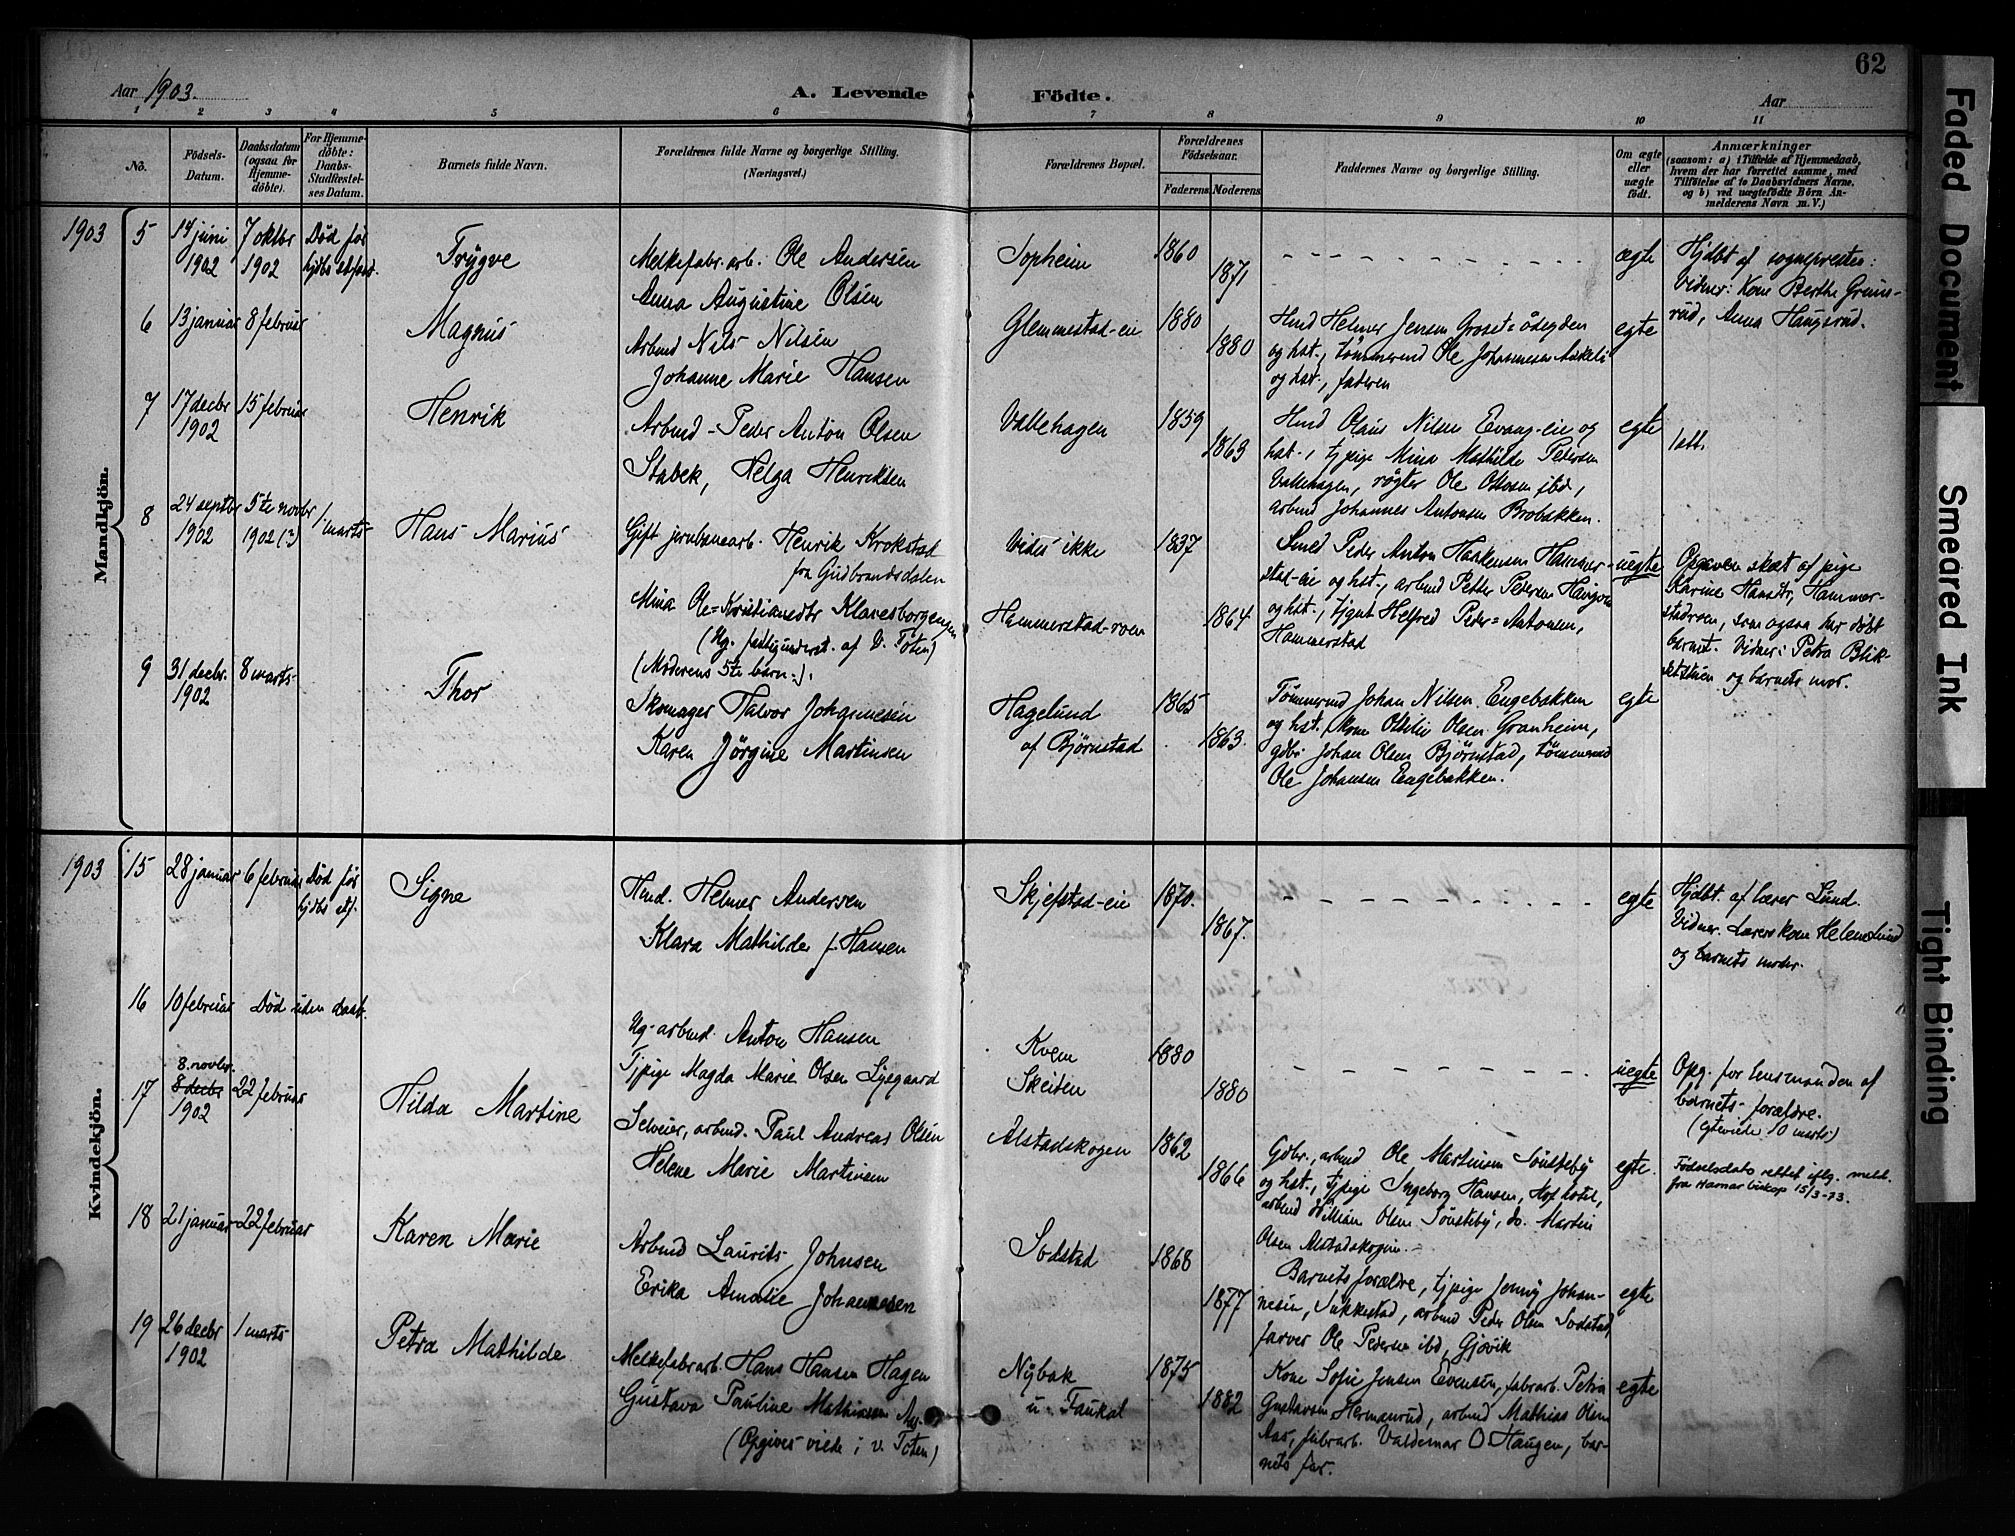 62
Aar 1903.
A. Levende Födte.
Aar
1 2 3 4 5 6 7 8 9 10 11
No.
Födsels-Datum.
Daabsdatum (ogsaa for Hjemmedöbte).
For Hjemmedöbte: Daabs-Stadfæstelses Datum.
Barnets fulde Navn.
Forældrenes fulde Navne og borgerlige Stilling. (Næringsvei.)
Forældrenes Bopæl.
Forældrenes Födselsaar.
Faderens Moderens
Faddernes Navne og borgerlige Stilling.
Om ægte eller uægte födt.
Anmærkninger
(saasom: a) i Tilfælde af Hjemmedaab, hvem der har forrettet samme, med Tilföielse af to Daabsvidners Navne, og b) ved uægtefödte Börn Anmelderens Navn m. V.)
Mandkjön.
1903 5 14 juni 1902 7 oktbr 1902 Död før
Trygve
Melkefabr. arb. Ole Andersen
Anna Augustine Olsen
Sopheim 1860 1871
ægte
Hjdbt af sognepresten:
Vidner: Kone Berthe Grims-
rud, Anna Haugsrud.
6 13 januar 8 februar
Magnus
Arbmd Nils Nilsen
Johanne Marie Hansen
Glemmestad-eie 1880 1880
Hmd Helmer Jensen Groset=ödegden
og hst., tømmermd Ole Johannesen
og hst., faderen
egte
7 17 decbr 1902 15 februar
Henrik
Arbmd - Peder Anton Olsen
Stabek, Helga Henriksen
Vallehagen 1859 1863
Hmd Olaus Nilsen Evang-eie og
hst., tj pige Mina Mathilde Petersen
Vallehagen, røgter Ole Olsen ibd,
arbmd Johannes Antonsen Brobakken.
egte
1 att.
8 24 septbr 1902 5te novbr 1902 (?) 1. marts
Hans Marius
Gift jernbanearb. Henrik Krokstad
fra Gudbrandsdalen
Mina Ole=Kristiansdtr Klavesborgengen
(Ug. fattigunderst. af V. Toten)
(Moderens 5te barn.).
Vides ikke 1837
Hammerstad-roen 1864
Smed Peder Anton Haakensen Hammer-
stad-eie og hst., arbmd Petter Pedersen
og hst., tjgut Helfred Peder=Antonsen,
Hammerstad
uegte
Opgaven skæt af pige
Karine Hansdtr, Hammer-
stadroen, som ogsaa har døbt
barnet. Vidner: Petra Blik-
og barnets mor.
9 31 decbr. 1902 8 marts
Thor
Skomager Halvor Johannesen
Karen Jörgine Martinsen
Hagelund
af Bjørnstad
1865 1863.
Tømmermd Johan Nilsen Engebakken
og hst. kone Otilie Olsen Granheim,
gdbr Johan Olsen Bjørnstad, tømmermd
Ole Johansen Engebakken.
egte
Kvindekjön.
1903 15 28 januar 6 februar Död før
Signe
Hmd. Helmer Andersen
Klara Mathilde f. Hansen
Skjefstad-eie 1870. 1867.
egte
Hjdbt. af lærer Lund.
Vidner. Lærers kone Helene Lund
og barnets moder.
16 10 februar Död uden daab.
Ug. arbmd. Anton Hansen
Tjpige Magda Marie Olsen Lyegaard
Kvem 1880
Skeiten 1880
uegte
Opg. for lensmanden af
barnets forældre.
(egteviede 10 marts)
17 8. novbr. 8 decbr 1902 22 februar
Hilda Martine
Selveier, arbmd. Paul Andreas Olsen
Helene Marie Martinsen
Alstadskogen 1862 1866
Gdbr., arbmd Ole Martinsen Sønsteby
og hst., tjpige Ingeborg Hansen, Hof hotel,
arbmd Villian Olsen Sønsteby, do. Martin
Olsen Alstadskogen. -
egte.
Fødselsdato rettet iflg. meld.
fra Hamar biskop 15/3-73.
18 21 januar 22 februar
Karen Marie
Arbmd Laurits Johnsen
Erika Amalie Johannesen
Sodstad 1868 1877
Barnets forældre, tjpige Jenny Johan-
nesen, Sukkestad, arbmd Peder Olsen Sodstad,
farver Ole Pedersen ibd, Gjøvik
egte
19 26 decbr 1902 1 marts
Petra Mathilde
Melkefabrarb. Hans Hansen Hagen
Gustava Pauline Mathisen
(Opgives viede i v. Toten)
Nybak
u. Faukal
1875 1882
Kone Sofie Jensen Evensen, fabrarb. Petra
Gustavsen Hermanrud, arbmd Mathias Olsen
Aas, fabrarb. Valdemar O Haugen, bar-
nets far.
egte
Faded Document
Smeared Ink
Tight Binding